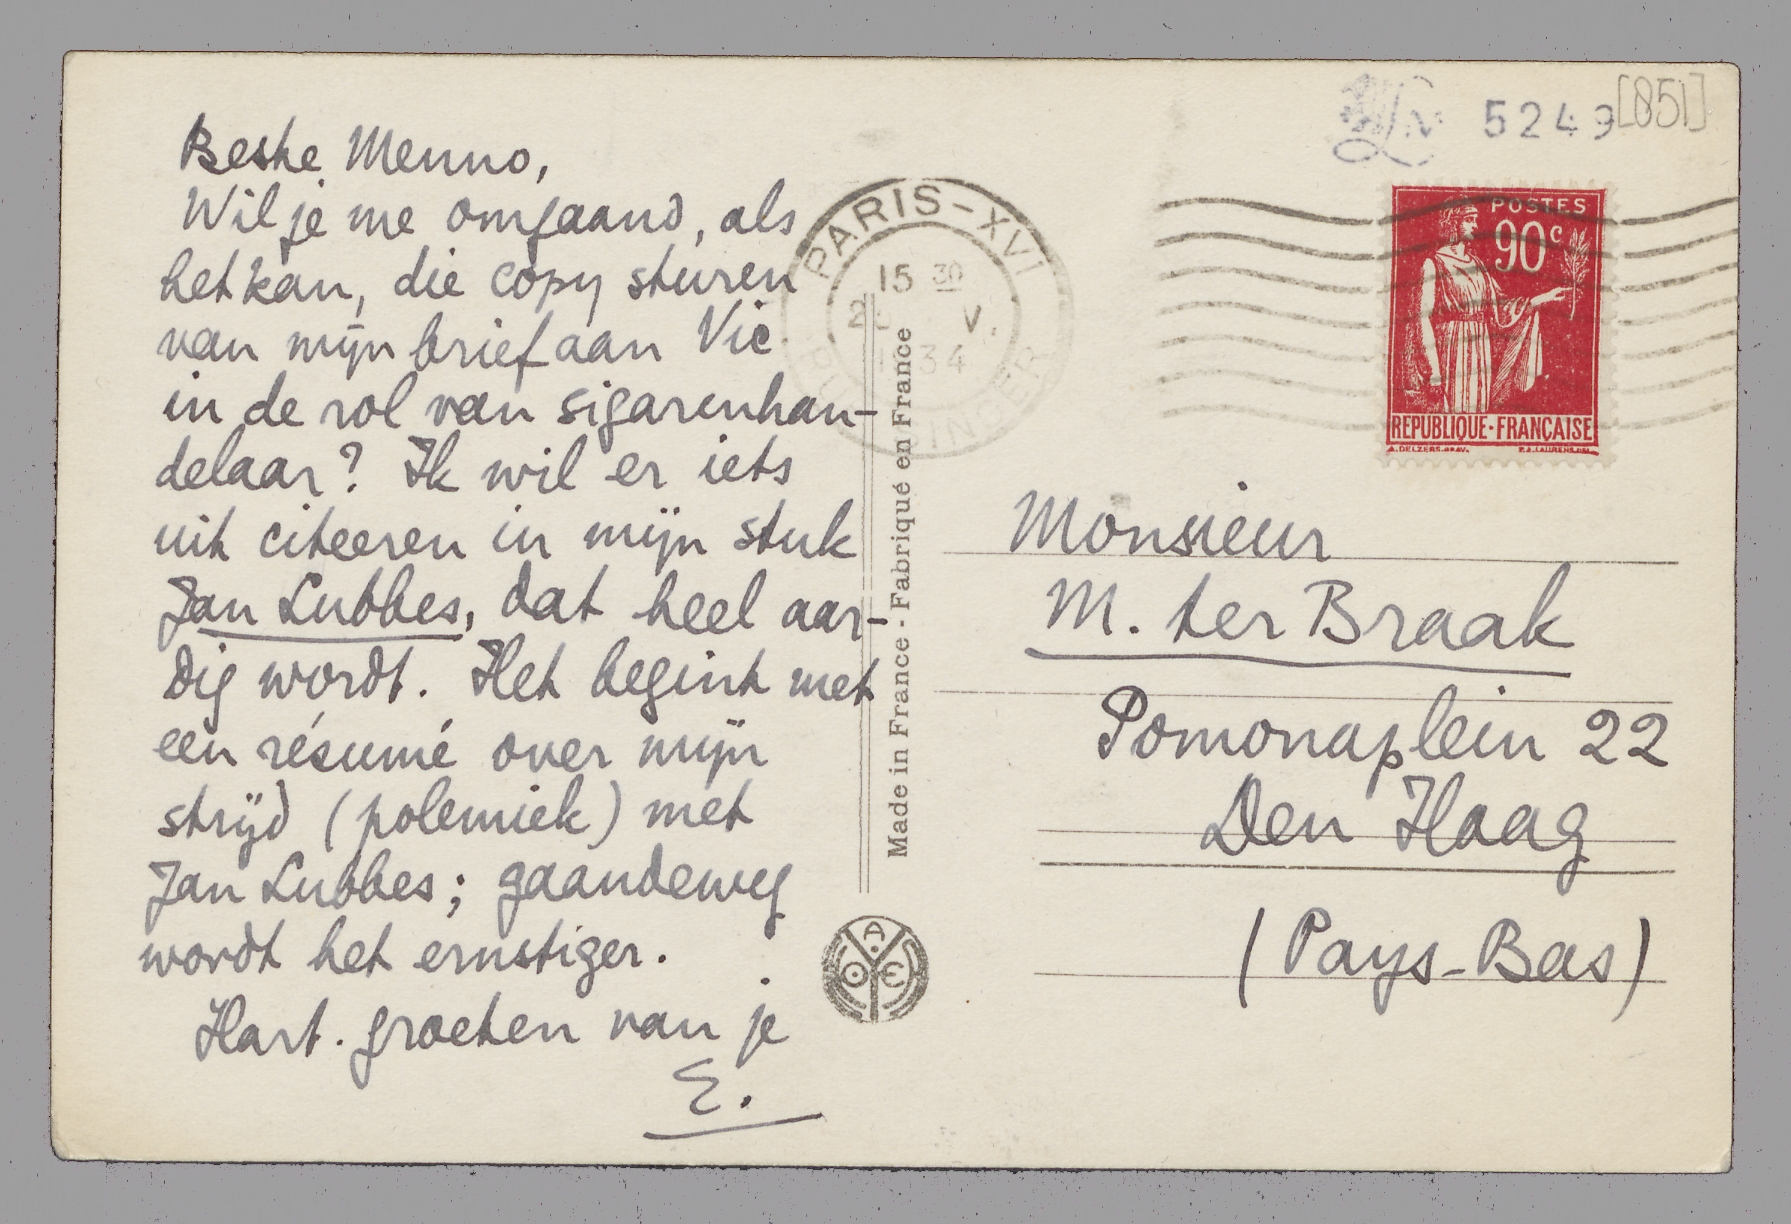 Beste Menno,
Wil je me omgaand, als
het kan, die copy sturen
van mijn brief aan Vic
in de rol van sigarenhan-
delaar? Ik wil er iets
uit citeeren in mijn stuk
Jan Lubbes, dat heel aar-
dig wordt. Het begint met
een résumé over mijn
strijd (polemiek) met
Jan Lubbes; gaandeweg
wordt het ernstiger.
Hart. groeten van je
E.
Made in France - Fabriqué en France
PARIS-XVI
15 30
V.
34
5249
[851]
POSTES
90c
REPUBLIQUE·FRANÇAISE
Monsieur
M. ter Braak
Pomonaplein 22
Den Haag
(Pays-Bas)